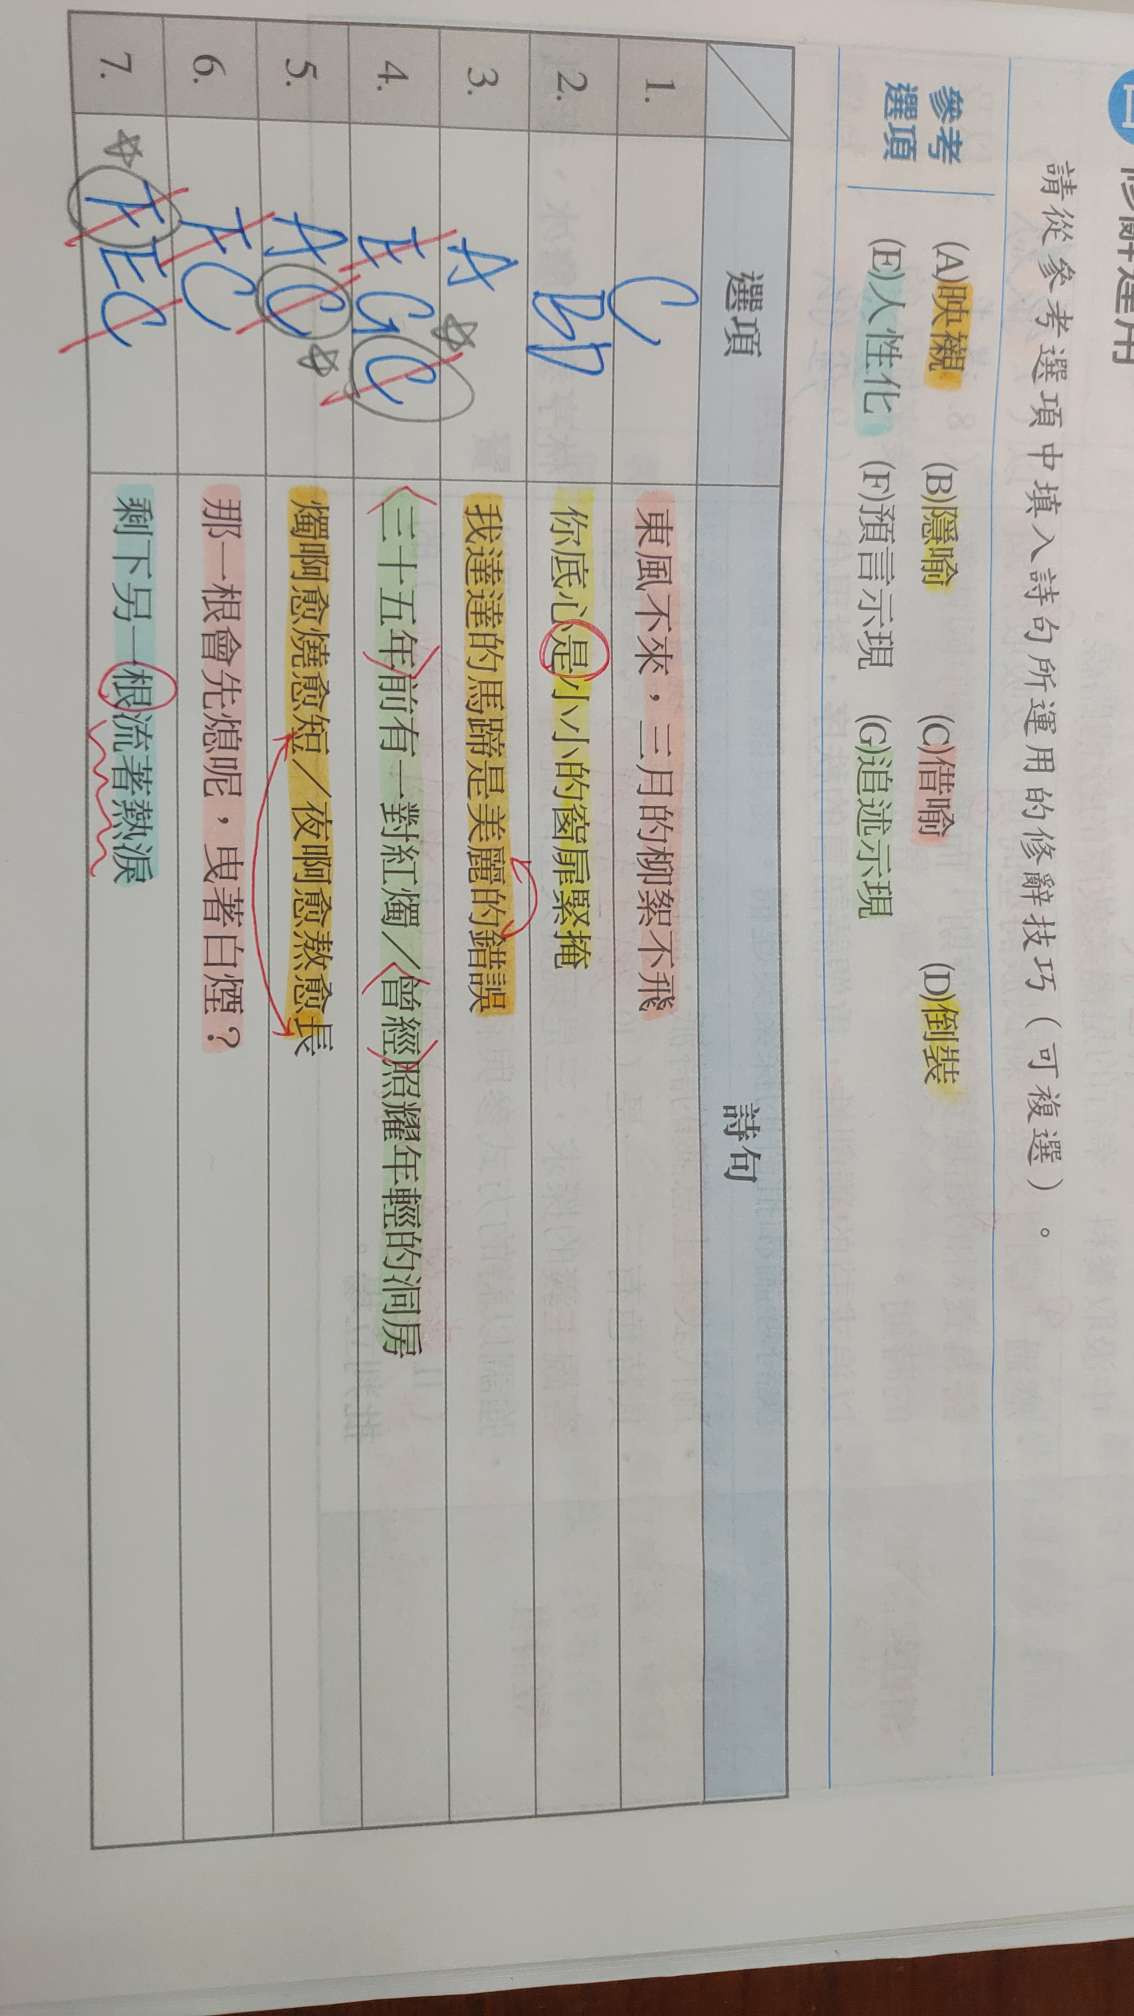 修辭運用
請從參考選項中填入詩句所運用的修辭技巧（可複選）。
參考選項
(A)映襯 (B)隱喻 (C)借喻 (D)倒裝
(E)人性化 (F)預言示現 (G)追述示現
選項 詩句
1. C 東風不來，三月的柳絮不飛
2. BD 你底心是小小的窗扉緊掩
3. A 我達達的馬蹄是美麗的錯誤
4. E G C 三十五年前有一對紅燭／曾經照耀年輕的洞房
5. A C 燭啊愈燒愈短／夜啊愈熬愈長
6. F C 那一根會先熄呢，曳著白煙？
7. F E C 剩下另一根流著熱淚